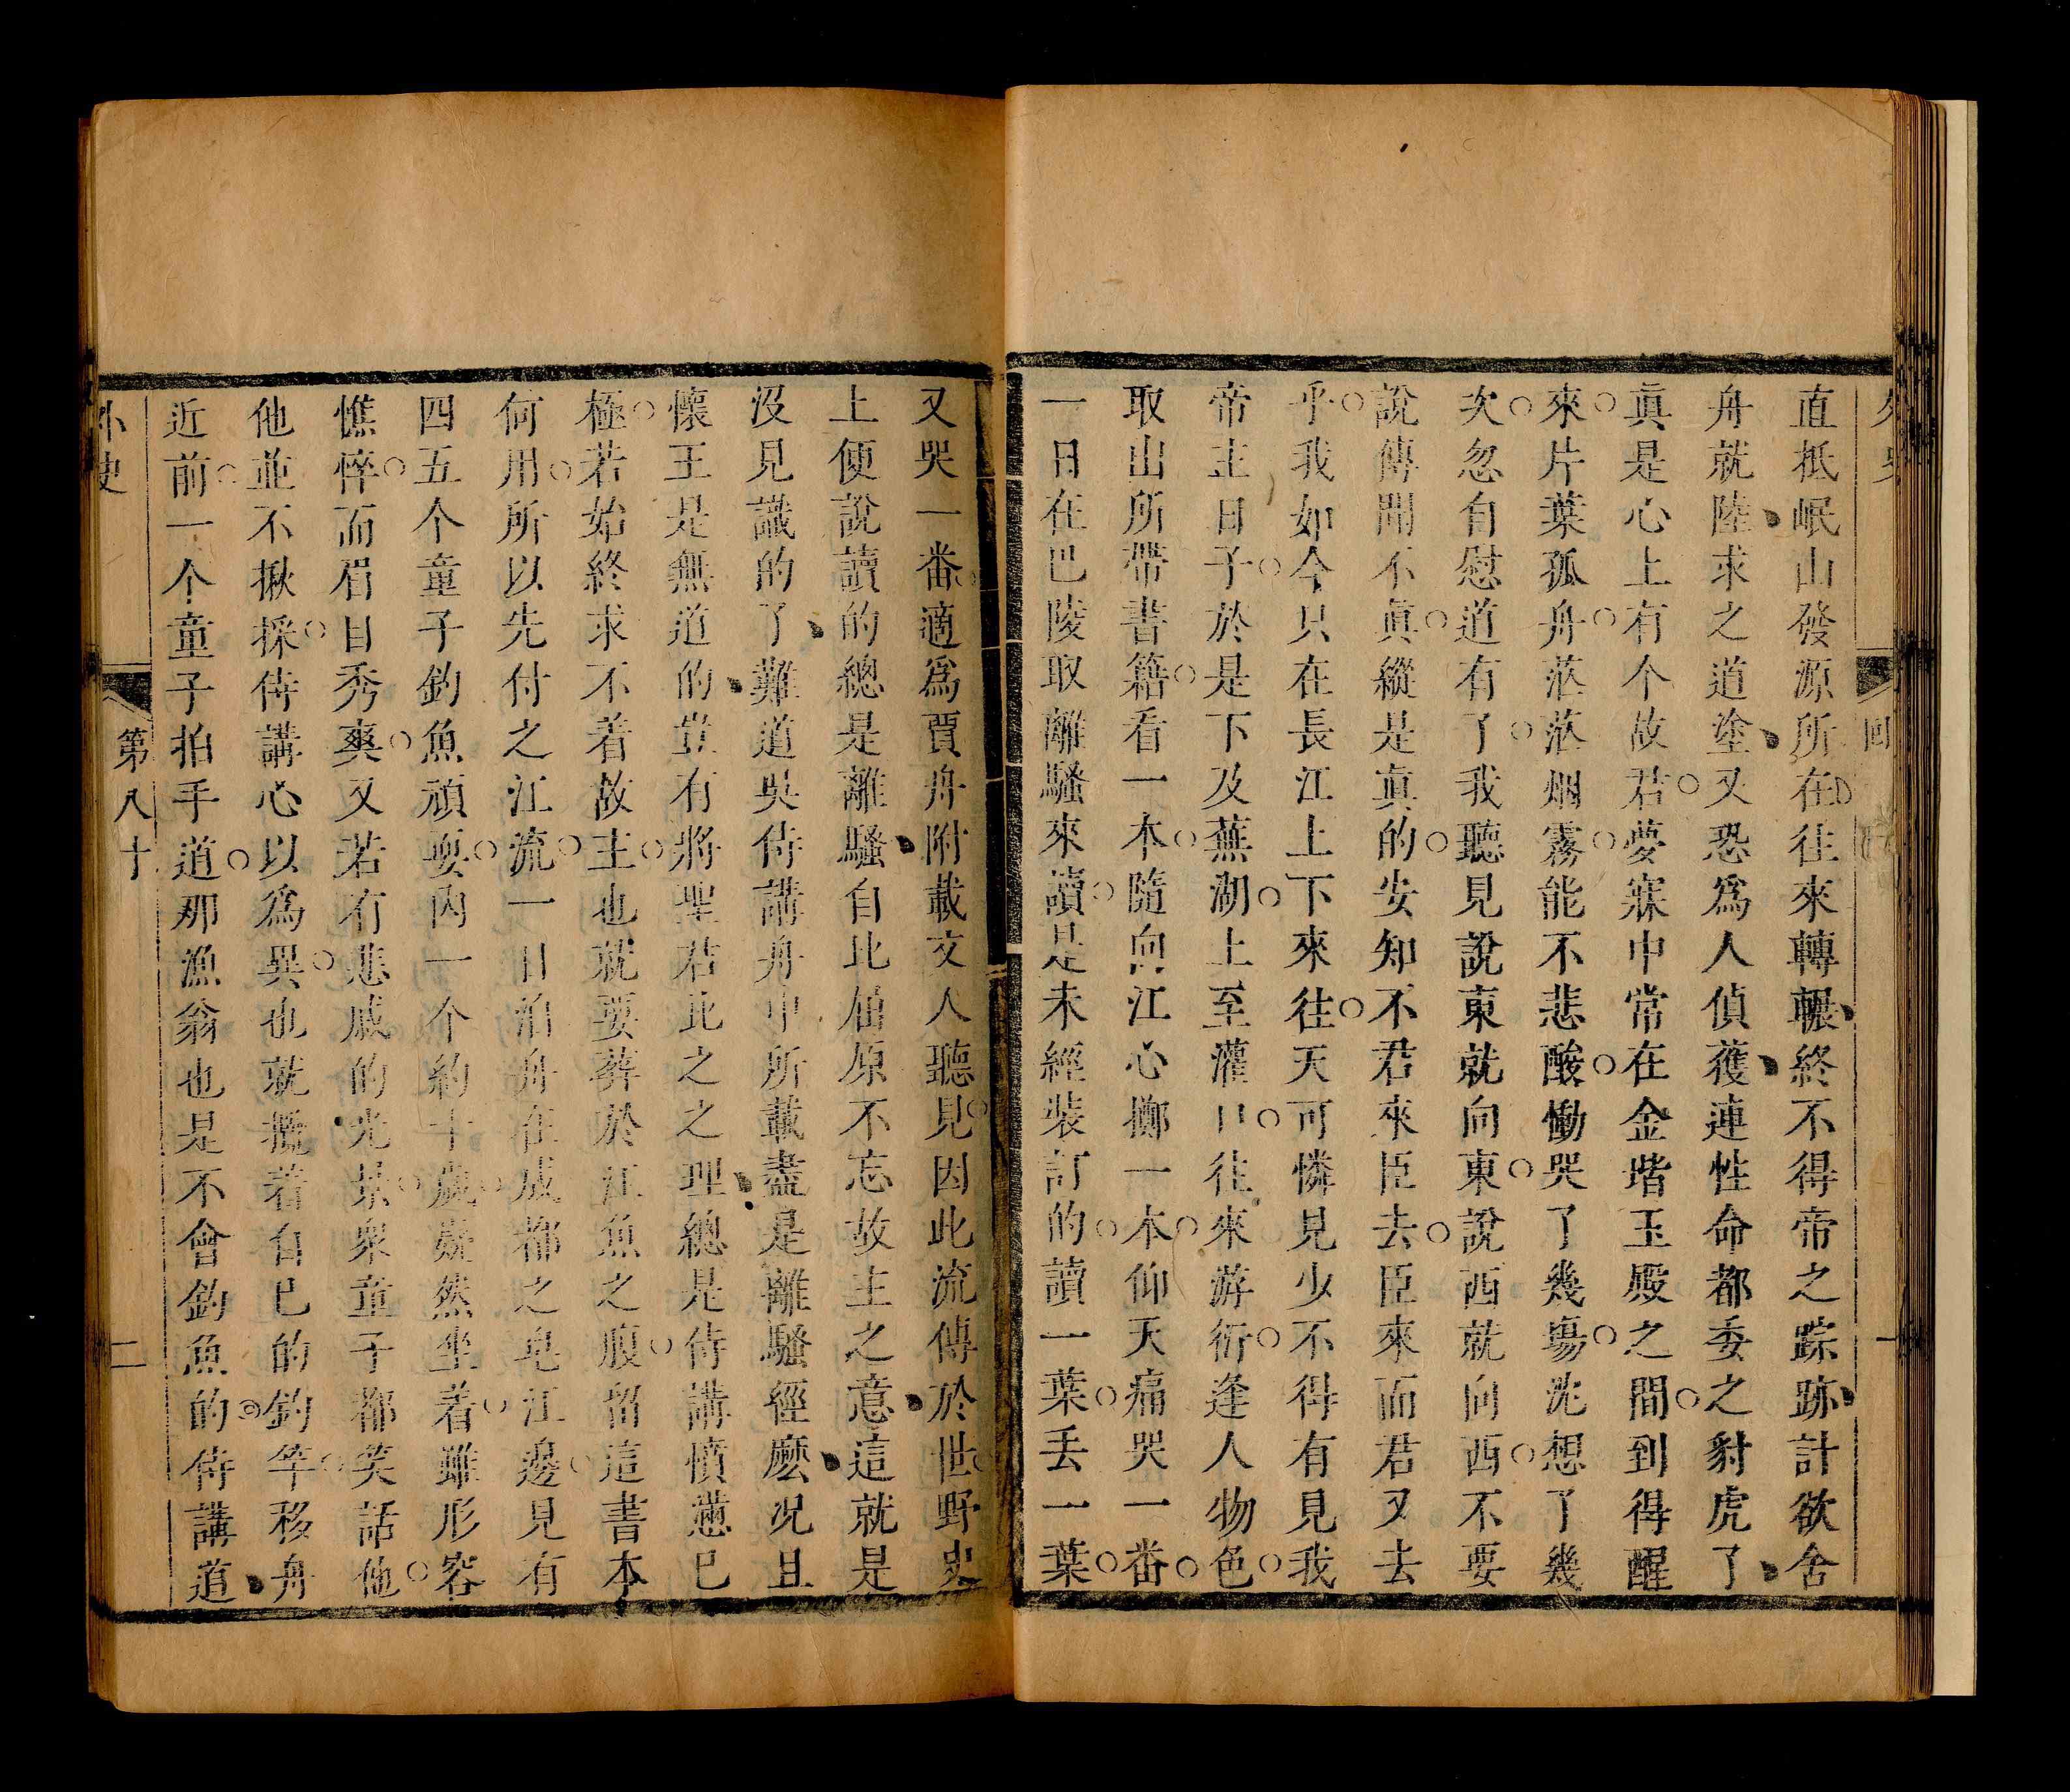 直抵岷山發源所在往來轉輾終不得帝之踪跡計欲舍
舟就陸求之道塗又恐爲人偵獲連性命都委之豺虎了
眞是心上有个故君夢寐中常在金堦玉殿之間到得醒
來片葉孤舟茫茫烟霧能不悲酸慟哭了幾塲沈想了幾
次忽自慰道有了我聽見說東就向東說西就向西不要
說傳聞不眞縱是眞的安知不君來臣去臣來而君又去
乎我如今只在長江上下來往天可憐見少不得有見我
帝主日子於是下及蕪湖上至灌口往來游衍逢人物色
取出所帶書籍看一本隨向江心擲一本仰天痛哭一番
一日在巴陵取離騷來讀是未經裝訂的讀一葉丟一葉
又哭一番適爲賈舟附載文人聽見因此流傳於世野史
上便說讀的總是離騷自比屈原不忘故主之意這就是
沒見識的了難道吳侍講舟中所載盡是離騷經麽況且
懷王是無道的豈有將聖君比之之理總是侍講憤懣已
極若始終求不着故主也就要葬於江魚之腹留這書本
何用所以先付之江流一日泊舟在成都之皂江邊見有
四五个童子釣魚頑耍內一个約十歲嶷然坐着雖形容
憔悴而眉目秀爽又若有悲戚的光景衆童子都笑話他
他並不揪採侍講心以爲異也就攏着自已的釣竿移舟
近前一个童子拍手道那漁翁也是不會釣魚的侍講道
外史
第八十
二